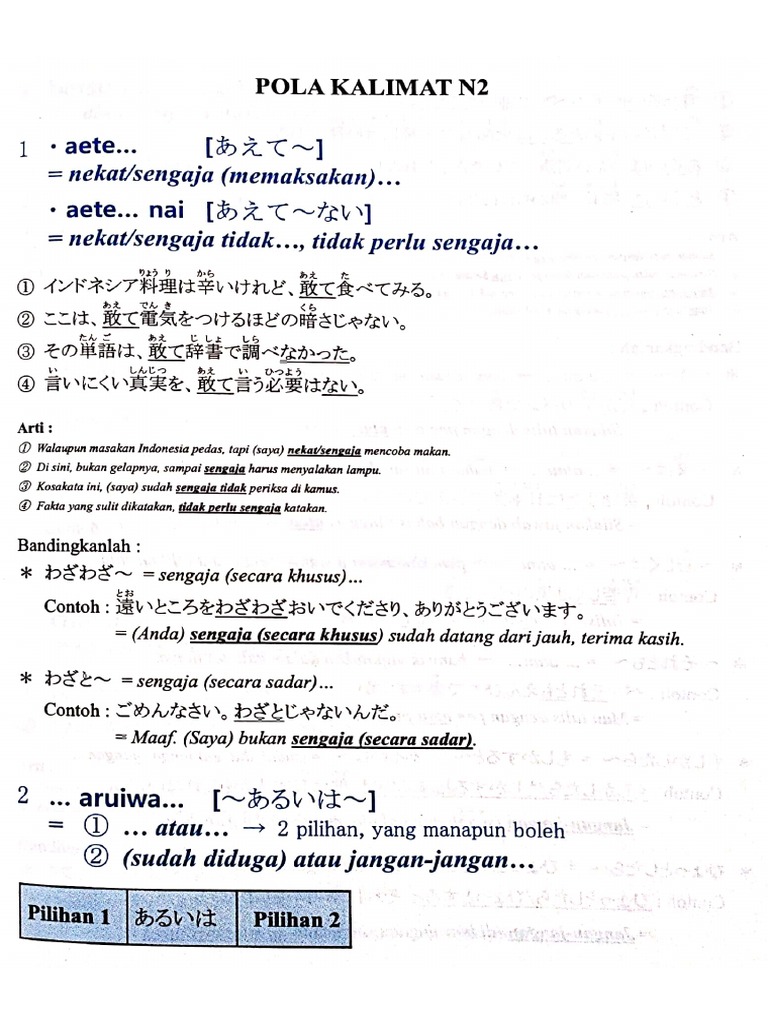 POLA KALIMAT N2
1 ・aete... [あえて～]
= nekat/sengaja (memaksakan)...
・aete... nai [あえて～ない]
= nekat/sengaja tidak..., tidak perlu sengaja...
① インドネシア料理は辛いけれど、敢て食べてみる。
② ここは、敢て電気をつけるほどの暗さじゃない。
③ その単語は、敢て辞書で調べなかった。
④ 言いにくい真実を、敢て言う必要はない。
Arti :
① Walaupun masakan Indonesia pedas, tapi (saya) nekat/sengaja mencoba makan.
② Di sini, bukan gelapnya, sampai sengaja harus menyalakan lampu.
③ Kosakata ini, (saya) sudah sengaja tidak periksa di kamus.
④ Fakta yang sulit dikatakan, tidak perlu sengaja katakan.
Bandingkanlah :
＊ わざわざ～ = sengaja (secara khusus)...
Contoh : 遠いところをわざわざおいでくださり、ありがとうございます。
= (Anda) sengaja (secara khusus) sudah datang dari jauh, terima kasih.
＊ わざと～ = sengaja (secara sadar)...
Contoh : ごめんなさい。わざとじゃないんだ。
= Maaf. (Saya) bukan sengaja (secara sadar).
2 ... aruiwa... [～あるいは～]
= ① ... atau... → 2 pilihan, yang manapun boleh
② (sudah diduga) atau jangan-jangan...
Pilihan 1 あるいは Pilihan 2